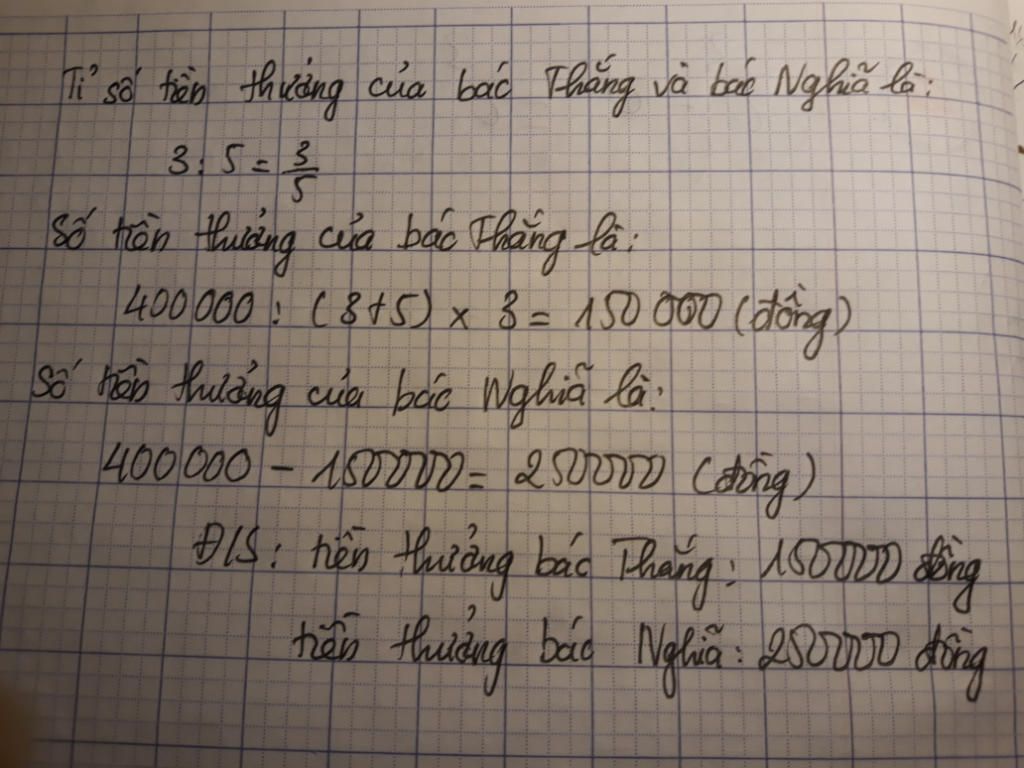 Tỉ số tiền thưởng của bác Thắng và bác Nghĩa là:
3 : 5 = 3/5
Số tiền thưởng của bác Thắng là:
400 000 : (3+5) x 3 = 150 000 (đồng)
Số tiền thưởng của bác Nghĩa là:
400 000 - 150000 = 250000 (đồng)
Đ/S: tiền thưởng bác Thắng: 150000 đồng
tiền thưởng bác Nghĩa: 250000 đồng